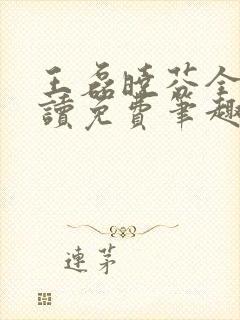 王磊曉芬全
讀免費筆趣
連茅